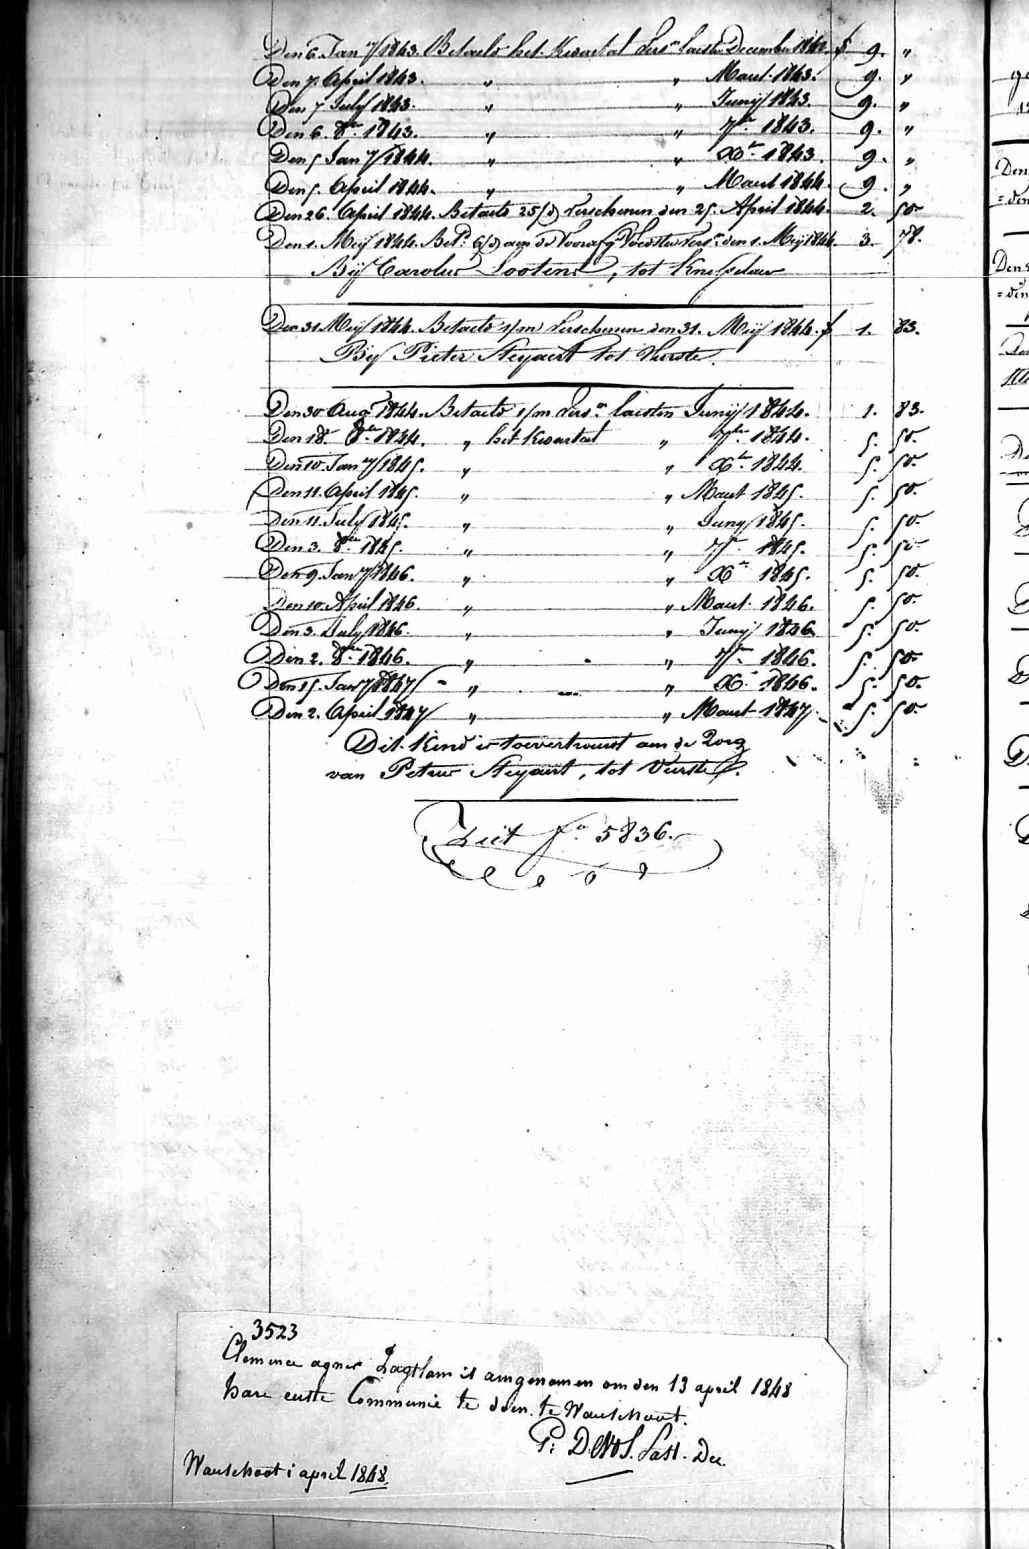 Den 6. Jan.ry 1843. Betaelt het Kwartal Vers.n laeste December 1842. f 9. "
Den 7. April 1843. " " Maert 1843. 9. "
Den 7. July 1843. " " Junij 1843. 9. "
Den 6. 8.er 1843. " " 7.er 1843. 9. "
Den 5. Jan.ry 1844. " " X.er 1843. 9. "
Den 5. April 1844. " " Maert 1844. 9. "
Den 26. April 1844. Betaelt 25/d verschenen den 25. April 1844. 2. 50.
Den 1. Meij 1844. Bet.t 6/d aen de Voorafg. Voedster vers. den 1. Meij 1844. 3. 78.
Bij Carolus Lootens, tot Knesselaer
Den 31 Meij 1844. Betaelt 1/m verschenen den 31. Meij 1844. f 1. 83.
Bij Pieter Steyaert tot Vurste.
Den 30 Aug.t 1844. Betaelt 1/m vers.n laesten Junij 1844. 1. 83.
Den 18. 8.ber 1844. " het Kwartal " 7.ber 1844. 5. 50.
Den 10. Jan.ry 1845. " " X.er 1844. 5. 50.
Den 11. April 1845. " " Maert 1845. 5. 50.
Den 11. July 1845. " " Juny 1845. 5. 50.
Den 3. 8.ber 1845. " " 7.er 1845. 5. 50.
Den 9. Jan.ry 1846. " " X.er 1845. 5. 50.
Den 10. April 1846. " " Maert 1846. 5. 50.
Den 3. July 1846. " " Junij 1846. 5. 50.
Den 2. 8.ber 1846. " " 7.er 1846. 5. 50.
Den 15. Jan.ry 1847 " " X.er 1846. 5. 50.
Den 2. April 1847 " " Maert 1847. 5. 50.
Dit Kind is toevertrouwt aen de Zorg
van Petrus Steyaert, tot Vurste.
Ziet f.o 5836.
3523
Clemence agnes Zagtlam is aengenomen om den 13 april 1848
hare eerste Communie te doen te Waerschoot.
P: De Vos. Past. Dec.
Waerschoot 1 april 1848.